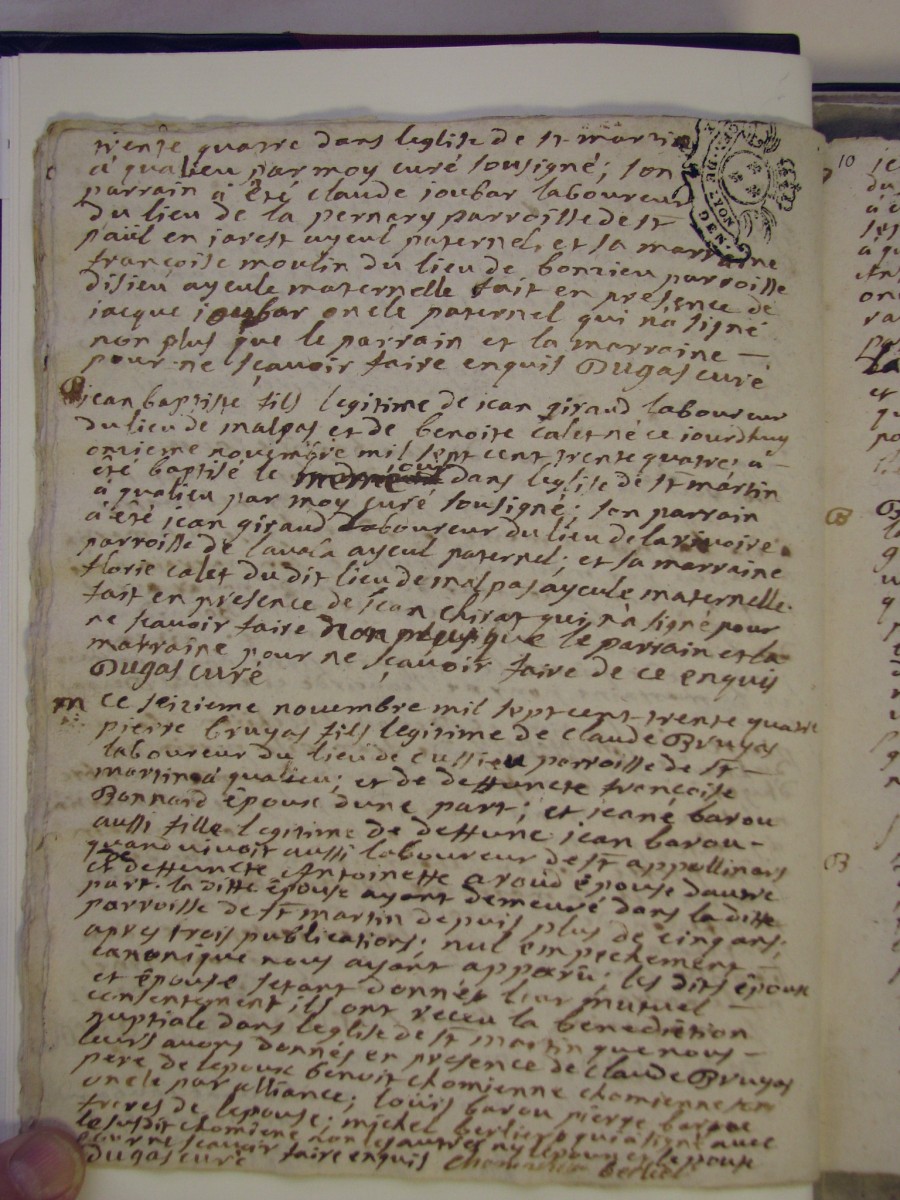 trente quatre dans leglise de st martin
à qualieu par moy curé sousigné; son
parrain à été claude joubar laboureur
du lieu de la pernary parroisse de st
paül en jarest ayeul paternel; et sa marraine
françoise moulin du lieu de bonzieu parroisse
disieu ayeule maternelle fait en présence de
jacque joubar oncle paternel qui nà signé
non plus que le parrain et la marraine —
pour ne sçavoir faire enquis Dugas curé
B
jean baptiste fils legitime de jean giraud laboureur
du lieu de malpas et de benoite calet né ce jourdhuy
onzieme novembre mil sept cent trente quatre; à
été baptisé le meme jour dans leglise de st martin
à qualieu par moy curé sousigné; son parrain
à été jean giraud laboureur du lieu de larivoire
parroisse de lavala ayeul paternel; et sa marraine
florie calet du dit lieu de malpas ayeule maternelle.
fait en presence de jean chirat qui nà signé pour
ne scavoir faire non plus que le parrain et la
marraine pour ne sçavoir faire de ce enquis
Dugas curé
m
ce seizieme novembre mil sept cent trente quatre
pierre bruyas fils legitime de claude Bruyas
laboureur du lieu de cussieu parroisse de st —
martin à qualieu; et de deffuncte françoise
Bonnard époux dune part; et jeane barou
aussi fille legitime de deffunc jean barou -
quand vivoit aussi laboureur de st appollinars
et de deffuncte Antoinette aroud épouse dautre
part. la ditte épouse ayant demeuré dans la ditte
parroisse de st martin depuis plus de cinq ans;
apres trois publications; nul empechement —
canonique nous ayant apparû; les dits époux
et épouse setant donnés leur mutuel —
consentement ils ont receu la benediction
nuptiale dans leglise de st martin que nous -
leurs avons donnés en présence de claude Bruyas
père de lepoux benoit chomienne
oncle par alliance; loüis barou pierre barou
freres de lepouse; michel berlier qui à signé avec
le susdit chomiene non les autres ny lepoux et lepouse
pour ne scavoir faire enquis
Dugas curé berlier
DE LYON
DEN.
10
B
B